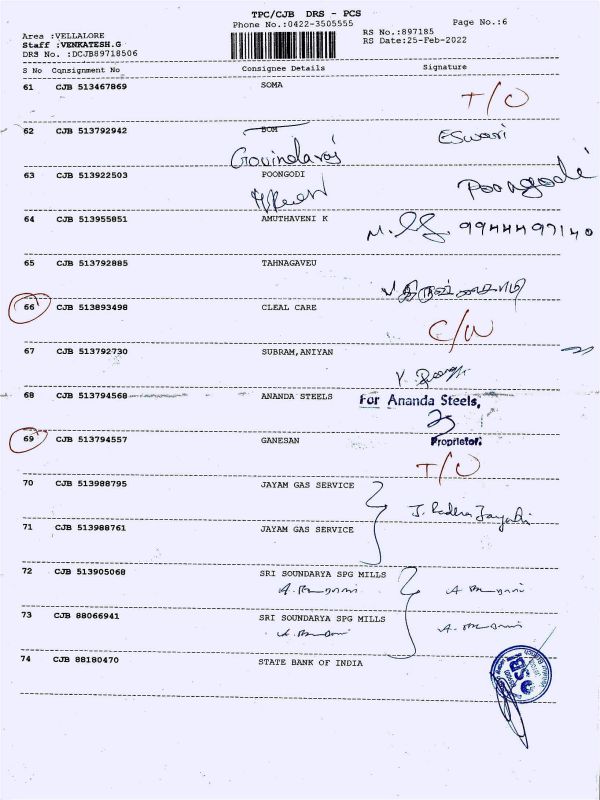 TPC/CJB DRS - PCS
Phone No.:0422-3505555 Page No.:6
Area :VELLALORE RS No.:897185
Staff :VENKATESH.G RS Date:25-Feb-2022
DRS No. :DCJB89718506
S No Consignment No Consignee Details Signature
61 CJB 513467869 SOMA
T/O
62 CJB 513792942 BOM ESwari
Govindaraj
63 CJB 513922503 POONGODI Poongodi
64 CJB 513955851 AMUTHAVENI K
9944497140
65 CJB 513792885 TAHNAGAVEU
66 CJB 513893498 CLEAL CARE
C/N
67 CJB 513792730 SUBRAM,ANIYAN
68 CJB 513794568 ANANDA STEELS For Ananda Steels,
69 CJB 513794557 GANESAN Proprietor.
T/O
70 CJB 513988795 JAYAM GAS SERVICE
J. Radha
71 CJB 513988761 JAYAM GAS SERVICE
72 CJB 513905068 SRI SOUNDARYA SPG MILLS
73 CJB 88066941 SRI SOUNDARYA SPG MILLS
74 CJB 88180470 STATE BANK OF INDIA
SBI